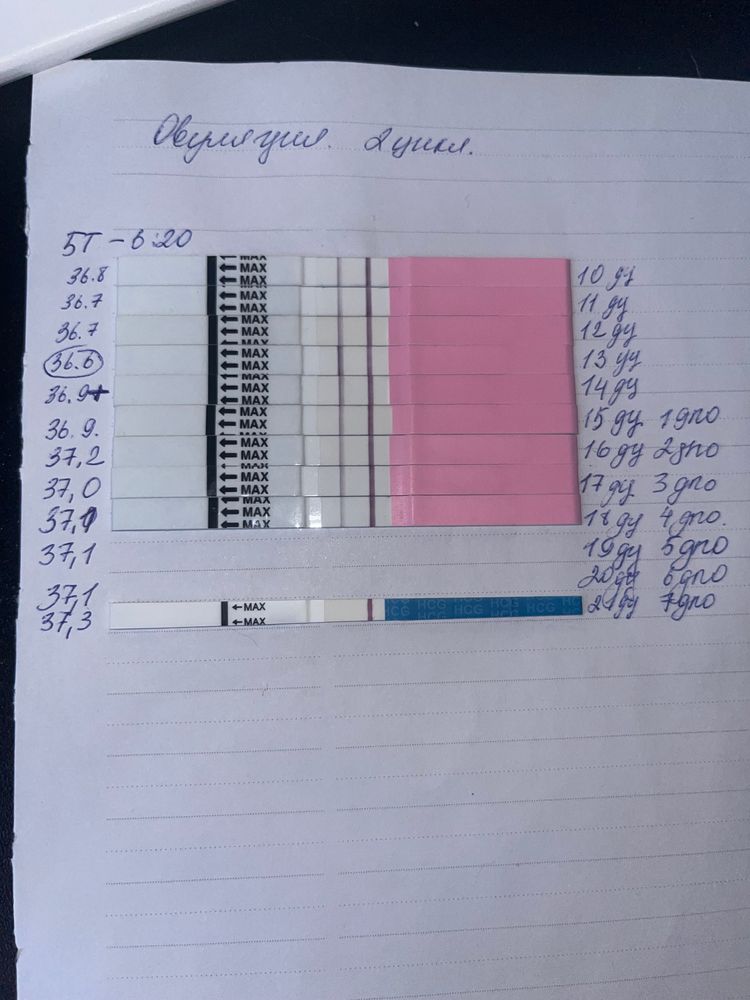 Овуляция. 2 цикл.
БТ - 6:20
36.8 MAX 10 дц
MAX
36.7 MAX 11 дц
MAX
36.7 MAX 12 дц
MAX
36.6 MAX 13 дц
MAX
36.9 MAX 14 дц
MAX
36.9. MAX 15 дц 1 дпо
MAX
37,2 MAX 16 дц 2 дпо
MAX
37,0 MAX 17 дц 3 дпо
MAX
37,1 MAX 18 дц 4 дпо.
MAX
37,1 19 дц 5 дпо
20 дц 6 дпо
37,1 MAX HCG HCG HCG HCG 21 дц 7 дпо
37,3 MAX HCG HCG HCG